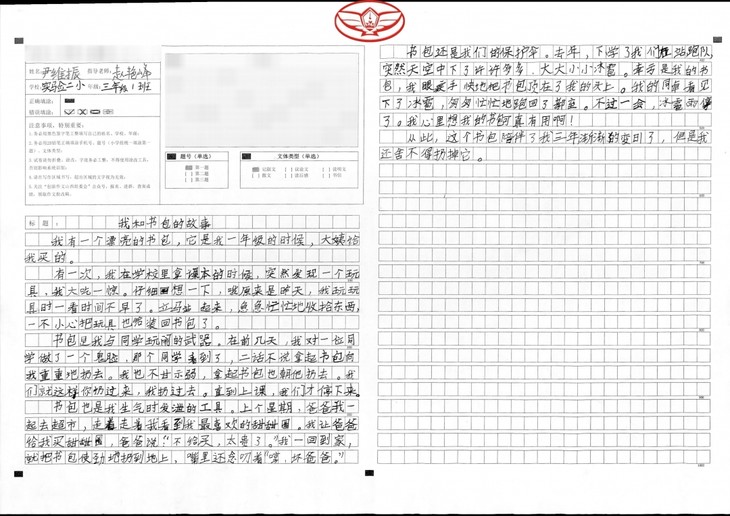 姓名:尹维振 指导老师:赵艳峰
学校:实验二小 年级:三年级1班
正确填涂:
错误填涂:
注意事项,特别重要:
题号(单选)
第一题
第二题
第三题
文体类型(单选)
记叙文 议论文 说明文
散文 读后感 书信
标题: 我和书包的故事
我有一个漂亮的书包,它是我一年级的时候,大姨给
我买的。
有一次,我在学校里拿课本的时候,突然发现一个玩
具,我大吃一惊。仔细想一下,哦原来是昨天,我玩玩
具时一看时间不早了。立马站起来,急急忙忙地收拾东西,
一不小心把玩具也给装回书包了。
书包是我与同学玩闹的武器。在前几天,我对一位同
学做了一个鬼脸,那个同学看到了,二话不说拿起书包向
我重重地扔去。我也不甘示弱,拿起书包也朝他扔去。我
们就这样你扔过来,我扔过去。直到上课,我们才停下来。
书包也是我生气时发泄的工具。上个星期,爸爸我一
起去超市,走着走着我看到我最喜欢的甜甜圈。我让爸爸
给我买甜甜圈,爸爸说“不给买,太贵了。”我一回到家,
就把书包使劲地扔到地上,嘴里还念叨着“哼,坏爸爸。”
书包还是我们的保护伞。去年,下学了我们在站跑队,
突然天空中下了许许多多、大大小小冰雹。幸亏是我的书
包,我眼疾手快地把书包顶在了我的头上。我的同桌看见
下了冰雹,匆匆忙忙地跑回了都直。不过一会,冰雹而停
了。我心里想我的书包真有用啊!
从此,这个书包陪伴了我三年渐渐的变旧了,但是我
还舍不得扔掉它。